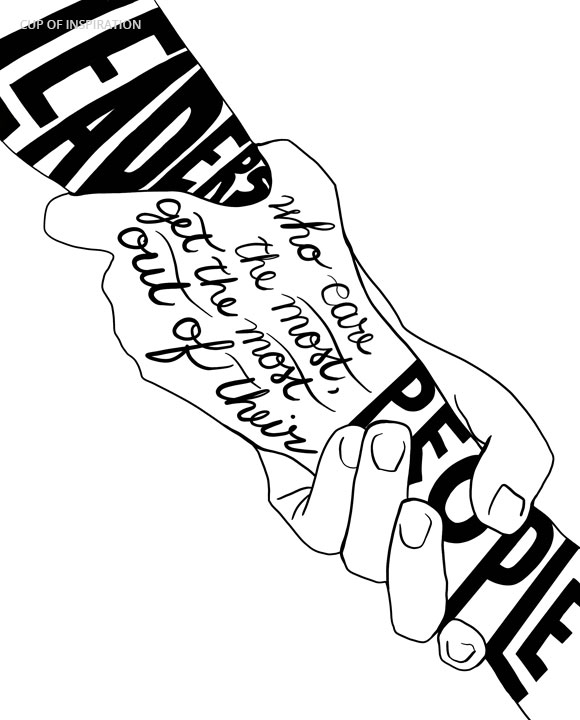 CUP OF INSPIRATION
LEADERS
who care
the most,
get the most
out of their
PEOPLE